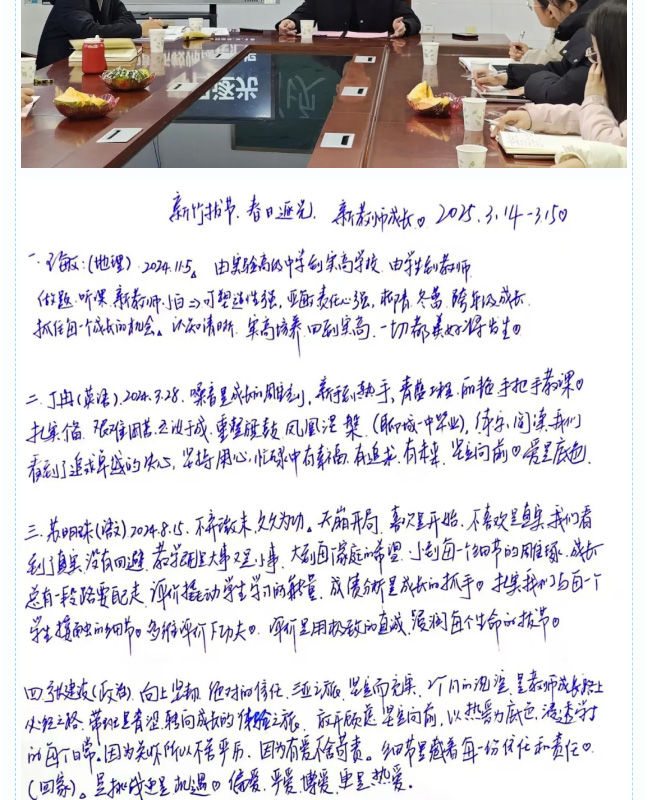 新竹拔节，春日逐光， 新教师成长。 2025.3.14-3.15。
一、王敏：(地理) 2024.11.5。 由实验高级中学到实高学校 由学生到教师
做题、听课、新教师小白⇒可塑造性强，亚敏责任心强，
抓住每一个成长的机会。认知清晰，实高培养，回到实高，一切都美好将发生。
二、丁冉(英语)，2024.3.28，嗓音是成长的 新手到熟手，青蓝工程 手把手教课。
扎实备 艰难困苦，玉汝于成，重整旗鼓，凤凰涅槃，(聊城一中毕业)，阅读，我们
看到了追求卓越的决心，坚持用心，忙碌中有幸福，有追求，有未来，坚定向前。爱是底色。
三、苏明珠(语文) 2024.8.15，不弃微末，久久为功。天崩开局，喜欢是开始，不喜欢是真实，我们看
到了真实，没有回避，教学既是大事又是小事，大到每个家庭的希望，小到每一个细节的雕琢，成长
总有一段路要自己走，评价撬动学生学习的能量，成绩分析是成长的抓手。扎实我们与每一个
学生接触的细节。多维评价下功夫。评价是用极致的真诚，浸润每个生命的拔节。
四、张建 (政治)，向上坚韧，绝对的信任，三亚之旅，坚定而充实，2个月的沉淀，是教师成长路上
必经之路，带班是青涩转向成长的体验之旅， 坚定向前，以热爱为底色，浸透学习
的每个日常。因为关怀所以不苦严厉，因为有爱不舍苛责。细节里藏着每一份信任和责任。
(回家)。是挑战更是机遇。偏爱、严爱、博爱、更是热爱。